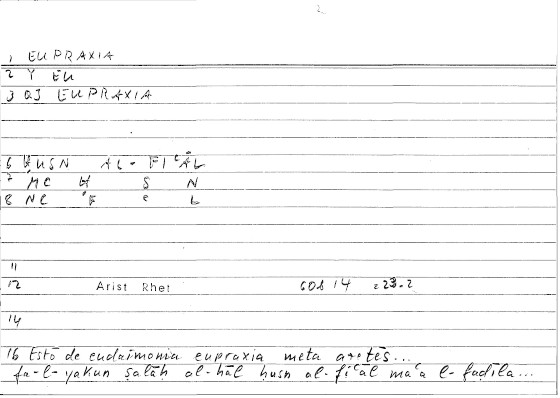 1 EUPRAXIA
2 Y EU
3 QJ EUPRAXIA
6 ḤUSN AL-FIʿĀL
7 MC Ḥ S N
8 NC F ʿ L
11
12 Arist Rhet 60b14 23.2
14
16 Estō de eudaimonia eupraxia meta aretēs...
fa-l-yakun ṣalāḥ al-ḥāl ḥusn al-fiʿāl maʿa l-faḍīla...